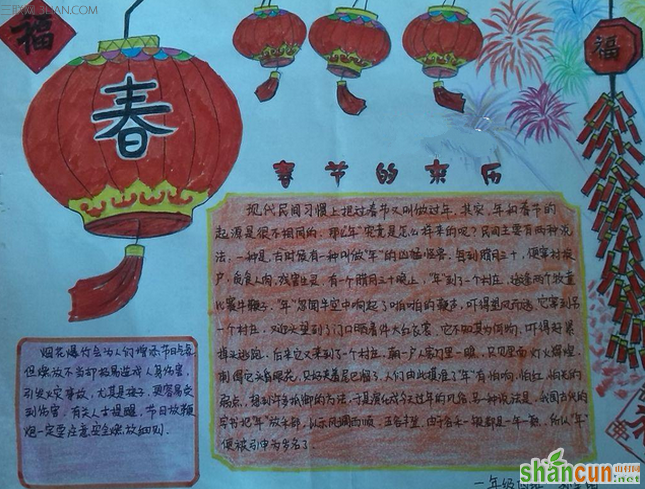 三联网 3LIAN.COM
福
春
福
春节的来历
现代民间习惯上把过春节又叫做过年。其实，年和春节的
起源是很不相同的。那么"年"究竟是怎么样来的呢？民间主要有两种说
法：一种是，古时候有一种叫做"年"的凶猛怪兽，每到腊月三十，便窜村挨
户，觅食人肉，残害生灵。有一个腊月三十晚上，"年"到了一个村庄，适逢两个牧童
比赛牛鞭子。"年"忽闻半空中响起了啪啪的鞭声，吓得望风而逃。它窜到另
一个村庄，又迎头望到了门口晒着件大红衣裳，它不知其为何物，吓得赶紧
掉头逃跑。后来它又来到了一个村庄，朝一户人家门里一瞧，只见里面灯火辉煌，
刺得它头昏眼花，只好夹着尾巴溜了。人们由此摸准了"年"有怕响，怕红，怕光的
弱点，想到许多抵御的方法，于是演化成今天过年的风俗。另一种说法是，我国古代的
字书把"年"放禾部，以示风调雨顺，五谷丰登。由于谷禾一般都是一年一熟。所以"年"
便被引申为岁名了。
烟花爆竹会为人们增添节日气氛
但燃放不当却极易造成人身伤害，
引发火灾事故，尤其是孩子，更容易受
到伤害。有关人士提醒，节日放鞭
炮一定要注意安全燃放细则。
一年级四班
shancun
山村网
.net